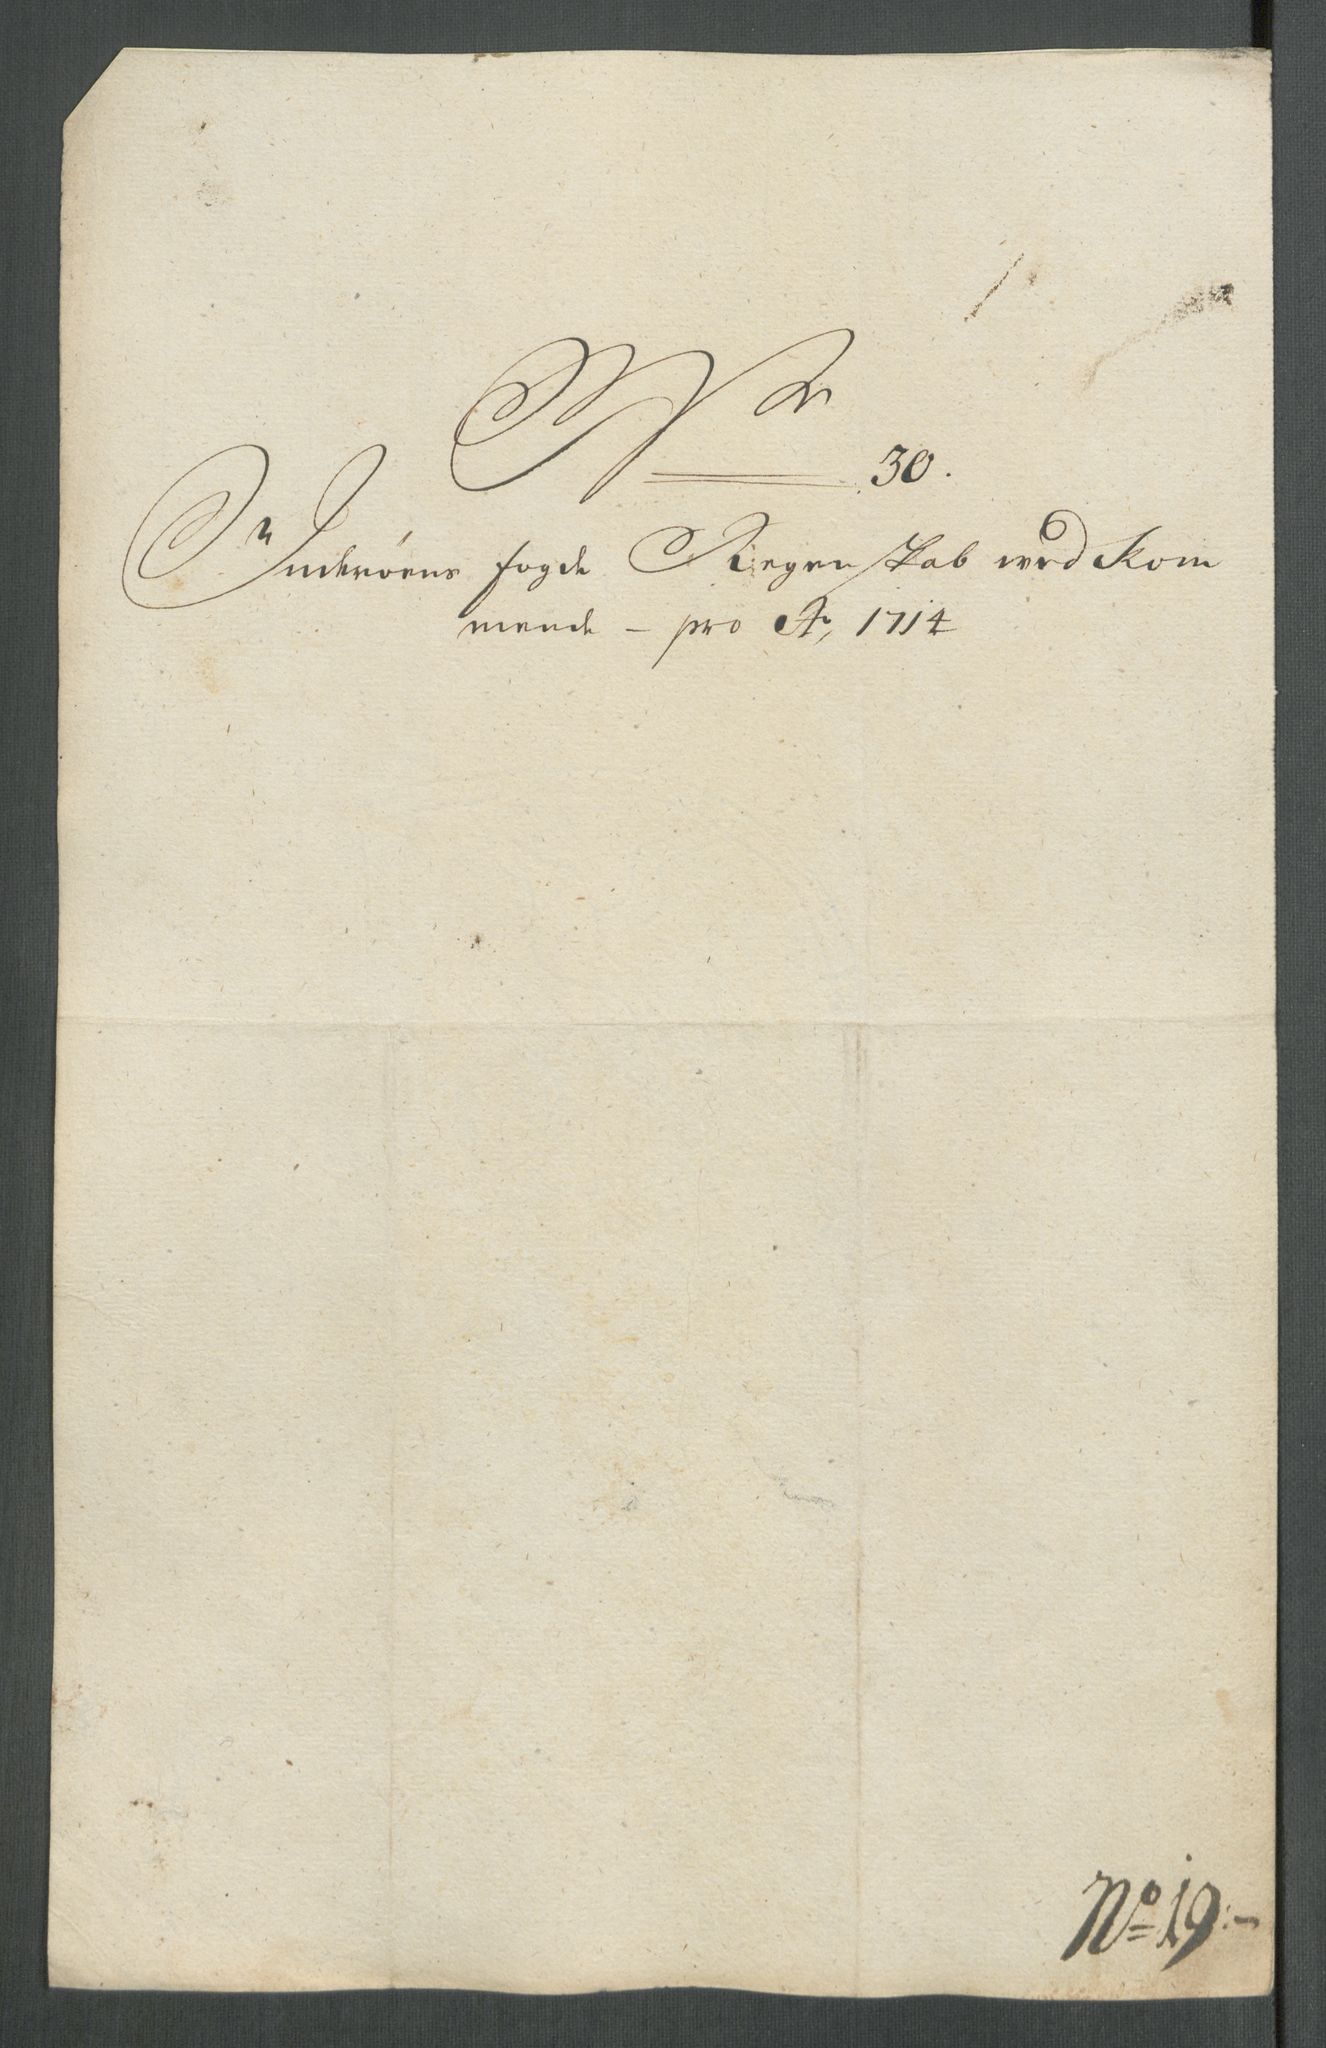 Nr
30.
Inderöens fogde Regenskab wed Kom
mende - pro Ao, 1714
No 19:-